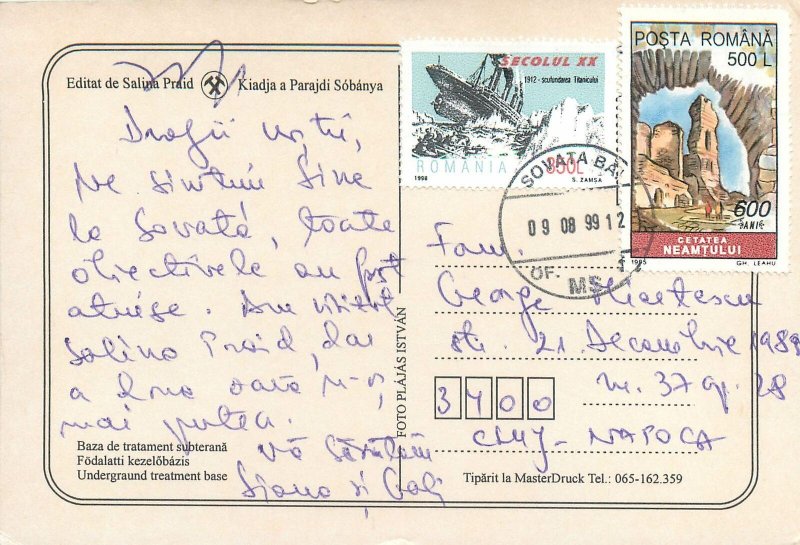 Editat de Salina Praid Kiadja a Parajdi Sóbánya
Dragii
Ne simțim bine
la Sovata, toate
obiectivele au fost
atinse. Am vizitat
Salina Praid, dar
a doua oară n-aș
mai putea.
Vă sărutăm
și Gabi
Baza de tratament subterană
Födalatti kezelőbázis
Undergraund treatment base
FOTO PLÁJÁS ISTVÁN
SECOLUL XX
1912 - scufundarea Titanicului
ROMÂNIA 850L
1998 S. ZAMSA
POȘTA ROMÂNĂ
500 L
600
JANIC
CETATEA
NEAMȚULUI
1995 GH. LEAHU
SOVATA BĂI
09 08 99 12
OF. MS
Fam.
George
str. 21 Decembrie 1989
nr. 37 ap. 28
3400
CLUJ-NAPOCA
Tipărit la MasterDruck Tel.: 065-162.359